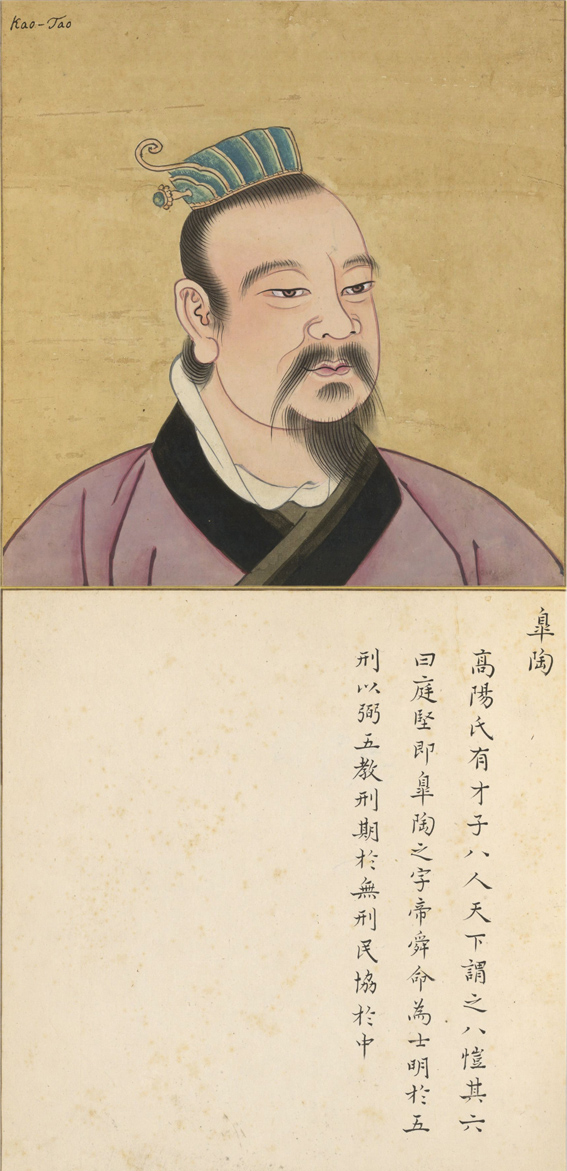 Kao-Tao
皐陶
高陽氏有才子八人天下謂之八愷其六
曰庭堅即皐陶之字帝舜命為士明於五
刑以弼五教刑期於無刑民協於中